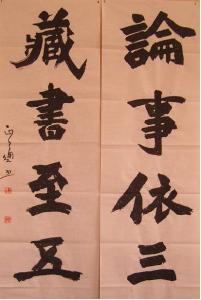 論事依三
藏書至五